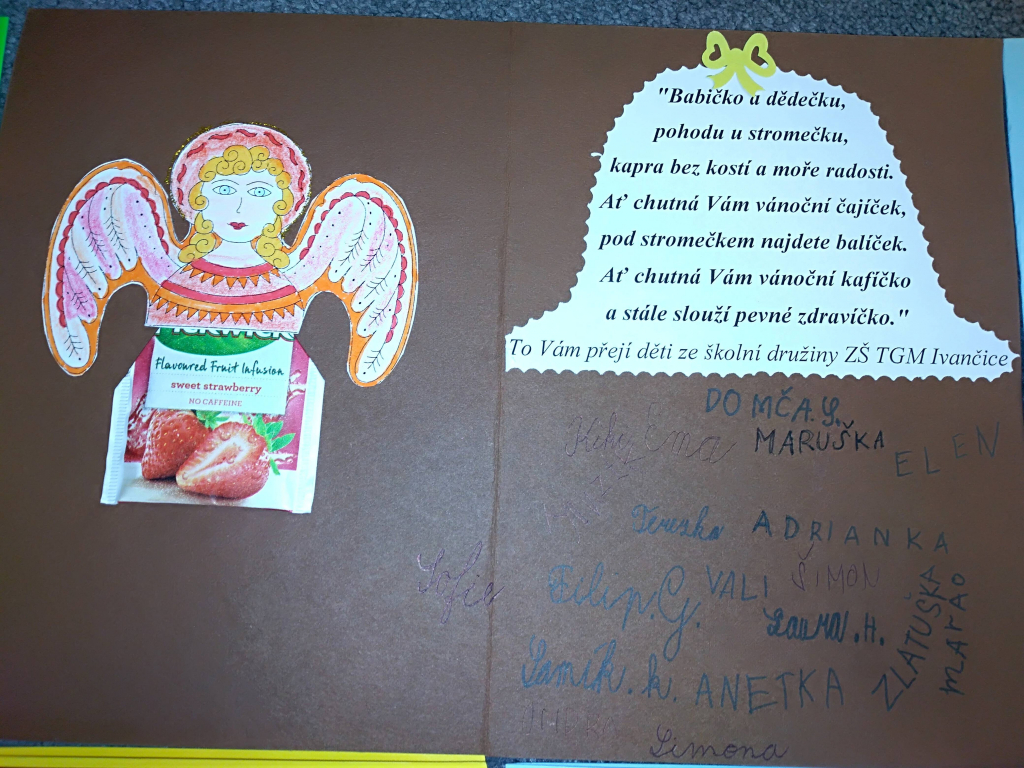 Flavoured Fruit Infusion
sweet strawberry
NO CAFFEINE
"Babičko a dědečku,
pohodu u stromečku,
kapra bez kostí a moře radosti.
Ať chutná Vám vánoční čajíček,
pod stromečkem najdete balíček.
Ať chutná Vám vánoční kafíčko
a stále slouží pevné zdravíčko."
To Vám přejí děti ze školní družiny ZŠ TGM Ivančice
DOMČA.Y.
Ema MARUŠKA
ELEN
Terezka ADRIANKA
Sofie
Filip.G. VALI ŠIMON
Laura.H.
ZLATUŠKA
ANETKA
Simona